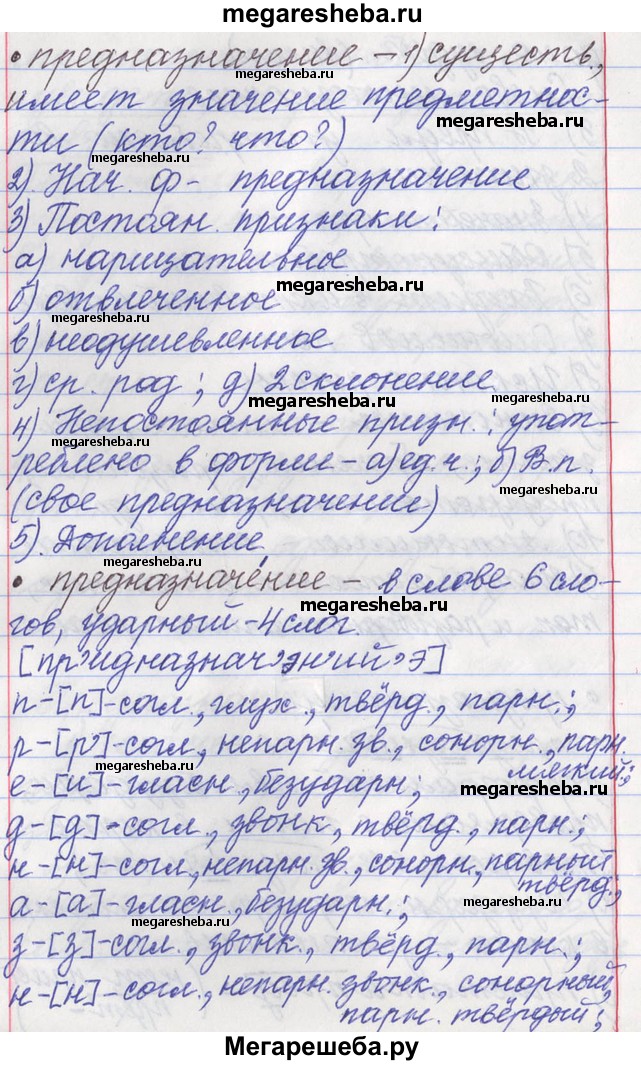 megaresheba.ru
• предназначение – 1) существ.,
megaresheba.ru
имеет значение предметнос-
megaresheba.ru
ти (кто? что?)
megaresheba.ru
2). Нач. ф – предназначение
3) Постоян. признаки:
а) нарицательное
megaresheba.ru
б) отвлеченное
megaresheba.ru
в) неодушевленное
г) ср. род; д) 2 склонение
megaresheba.ru
4) Непостоянные призн.: упот-
megaresheba.ru
реблено в форми – а) ед.ч.; б) В.п.
(свое предназначение)
megaresheba.ru
5). Дополнение
megaresheba.ru
• предназначе́ние – в слове 6 сло-
megaresheba.ru
гов, ударный – 4 слог.
[пр'идназнач'эн'ий'э]
megaresheba.ru
п – [п] – согл., глух., твёрд., парн.;
р – [р'] – согл., непарн. зв., сонорн., парн.
мягкий;
megaresheba.ru
е – [и] – гласн., безударн;
megaresheba.ru
д – [д] – согл., звонк., твёрд., парн.;
megaresheba.ru
н – [н] – согл., непарн. зв., сонорн., парный
твёрд.;
а – [а] – гласн., безударн.;
megaresheba.ru
megaresheba.ru
з – [з] – согл., звонк., твёрд., парн.;
megaresheba.ru
н – [н] – согл., непарн. звонк., сонорный,
парн. твёрдый;
Мегарешеба.ру